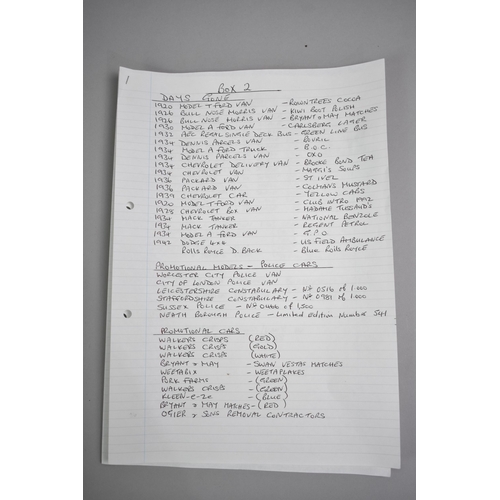 1
BOX 2
DAYS GONE
1920 MODEL T FORD VAN - ROWNTREES COCOA
1926 BULL NOSE MORRIS VAN - KIWI BOOT POLISH
1926 BULL NOSE MORRIS VAN - BRYANT & MAY MATCHES
1930 MODEL A FORD VAN - CARLSBERG LAGER
1932 AEC REGAL SINGLE DECK BUS - GREEN LINE BUS
1934 DENNIS PARCELS VAN - BOVRIL
1934 MODEL A FORD TRUCK - B.O.C.
1934 DENNIS PARCELS VAN - OXO
1934 CHEVROLET DELIVERY VAN - BROOKE BOND TEA
1934 CHEVROLET VAN - MAGGI'S SOUPS
1936 PACKARD VAN - ST IVEL
1936 PACKARD VAN - COLMANS MUSTARD
1939 CHEVROLET CAR - YELLOW CABS
1920 MODEL T FORD VAN - CLUB INTRO 1992
1928 CHEVROLET BOX VAN - MADAME TUSSAUD'S
1934 MACK TANKER - NATIONAL BENZOLE
1934 MACK TANKER - REGENT PETROL
1934 MODEL A FORD VAN - G.P.O.
1942 DODGE 4x4 - US FIELD AMBULANCE
ROLLS ROYCE D. BACK - BLUE ROLLS ROYCE
PROMOTIONAL MODELS - POLICE CARS
WORCESTER CITY POLICE VAN
CITY OF LONDON POLICE VAN
LEICESTERSHIRE CONSTABULARY - No 0516 of 1.000
STAFFORDSHIRE CONSTABULARY - No 0981 of 1.000
SUSSEX POLICE - No 0466 of 1.500
NEATH BOROUGH POLICE - Limited Edition Number
PROMOTIONAL CARS
WALKERS CRISPS (RED)
WALKERS CRISPS (GOLD)
WALKERS CRISPS (WHITE)
BRYANT & MAY - SWAN VESTAS MATCHES
WEETABIX - WEETAFLAKES
PORK FARMS - (GREEN)
WALKERS CRISPS - (GREEN)
KLEEN-E-ZE - (BLUE)
BRYANT & MAY MATCHES - (RED)
OSIER & SONS REMOVAL CONTRACTORS